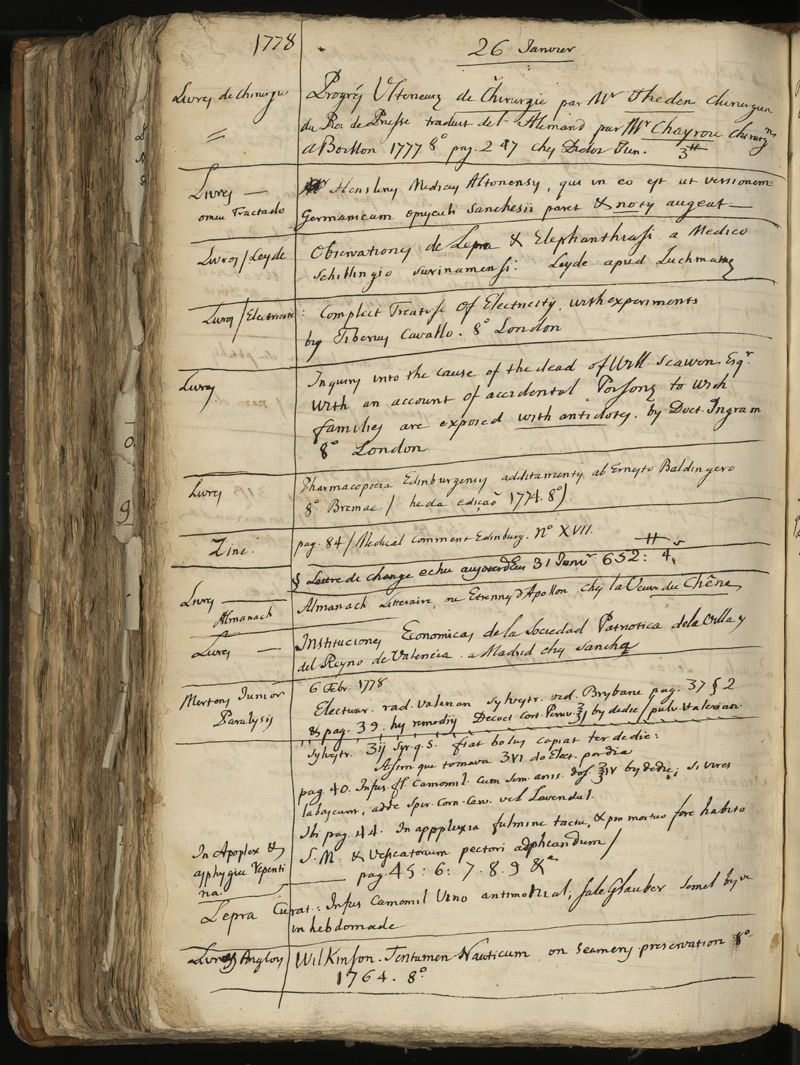 1778
26 Janvier
Livres de Chirurgie
Progrés Ulterieurs de Chirurgie par Mr Theden Chirurgien
du Roi de Prusse traduit de l'Alemand par Mr Chayrou Chirurgn
a Bouillon 1777 8° pag. 247 chez Didot Jun. 3
Livres —
omeu Tractado
Henslerus Medicus Altonensis, qui in eo est ut versionem
Germanicam opusculi Sanchesii paret & notis augeat —
Livros / Leyde
Observationes de Lepra & Elephanthiasi a Medico
Schillingio Surinamensi: Leyde apud Luchmans
Livros / Electricité:
Complect Treatise Of Electricity, with experiments
by Tiberius Cavallo. 8° London
Livros
Inquiry into the cause of the dead of Will Scawen Esqr.
With an account of accidental Poisons to wich
families are exposed with antidotes. by Doct Ingram
8° London
Livros
Pharmacopoeia Edinburgensis additamentis ab Ernesto Baldingero
8° Bremae / he da ediçaõ 1774. 8°)
Zinc.
pag. 84 / Medical Comment Edinburg. N° XVII.
§ Lettre de change echu aujourdhui 31 Janvr 652: 4
Livres
Almanach
Almanach Literaire, ou Etrennes d'Apollon chez la Veuve du Chêne
Livres —
Instituciones Economicas de la Sociedad Patriotica de la Villa y
del Reyno de Valencia. a Madrid chez Sancha
6 Febr. 1778
Mertens Junior
Paralysis
Electuar. rad. Valerian Sylvestr. vid. Brysbane pag. 37 § 2
& pag. 39, his remedis Decoct Cort. Peruv. by dedie / pulv. Valerian
Sylvestr. 3ij Syr. q. s. fiat bolus capiat ter de die:
Assim que tomava 3vi do Elect. por dia
pag. 40. Infus. fl Camomil. cum Sem. anis. dos. by de die; si vires
labascunt, adde Spir. Corn. Cerv. vel Lavendul.
Ibi pag. 44. In appoplexia fulmine tactu, & pro mortuo fore habito
In Apoplex &
asphygia repenti
na.
S. M. & Vesicatorium pectori applicandum /
pag. 45: 6: 7. 8. 9 &a
Lepra Curat: Infus Camomil Vino antimonial, Sale Glauber Semel
in hebdomade
Livros Anglois
Wilkinson. Tentamen Nauticum on Seamens preservation 8°
1764. 8°